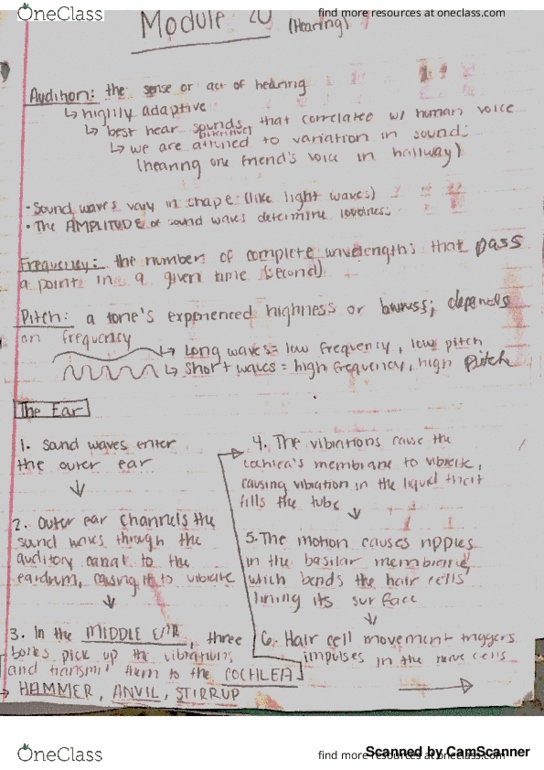 OneClass
find more resources at oneclass.com
Module 20 (Hearing)
Audition: the sense or act of hearing
↳ highly adaptive
↳ best hear sounds that correlated w/ human voice
↳ we are attuned to variation in sound.
(hearing one friend's voice in hallway)
• Sound waves vary in shape (like light waves)
• The AMPLITUDE of sound waves determine loudness
Frequency: the number of complete wavelengths that pass
a point in a given time (second)
Pitch: a tone's experienced highness or lowness; depends
on frequency
↳ Long waves = low frequency, low pitch
↳ Short waves = high frequency, high pitch
The Ear
1. Sound waves enter
the outer ear
↓
2. Outer ear channels the
sound waves through the
auditory canal to the
eardrum, causing it to vibrate
↓
3. In the MIDDLE EAR, three
bones pick up the vibrations
and transmit them to the COCHLEA
→ HAMMER, ANVIL, STIRRUP
4. The vibrations cause the
cochlea's membrane to vibrate,
causing vibration in the liquid that
fills the tube
↓
5. The motion causes ripples
in the basilar membrane,
which bends the hair cells
lining its surface
↓
6. Hair cell movement triggers
impulses in the nerve cells
→
OneClass
find more resources at oneclass.com
Scanned by CamScanner